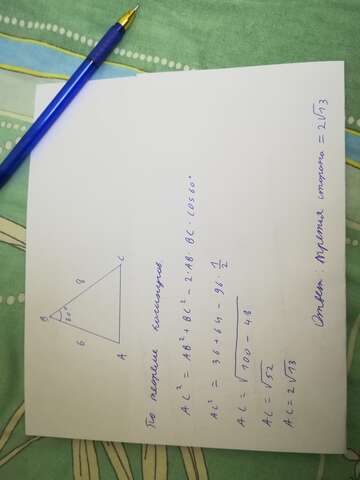 B
60°
6
8
A
C
По теореме косинусов
AC² = AB² + BC² - 2·AB·BC·cos60°
AC² = 36 + 64 - 96 · 1/2
AC = √100 - 48
AC = √52
AC = 2√13
Ответ: третья сторона = 2√13